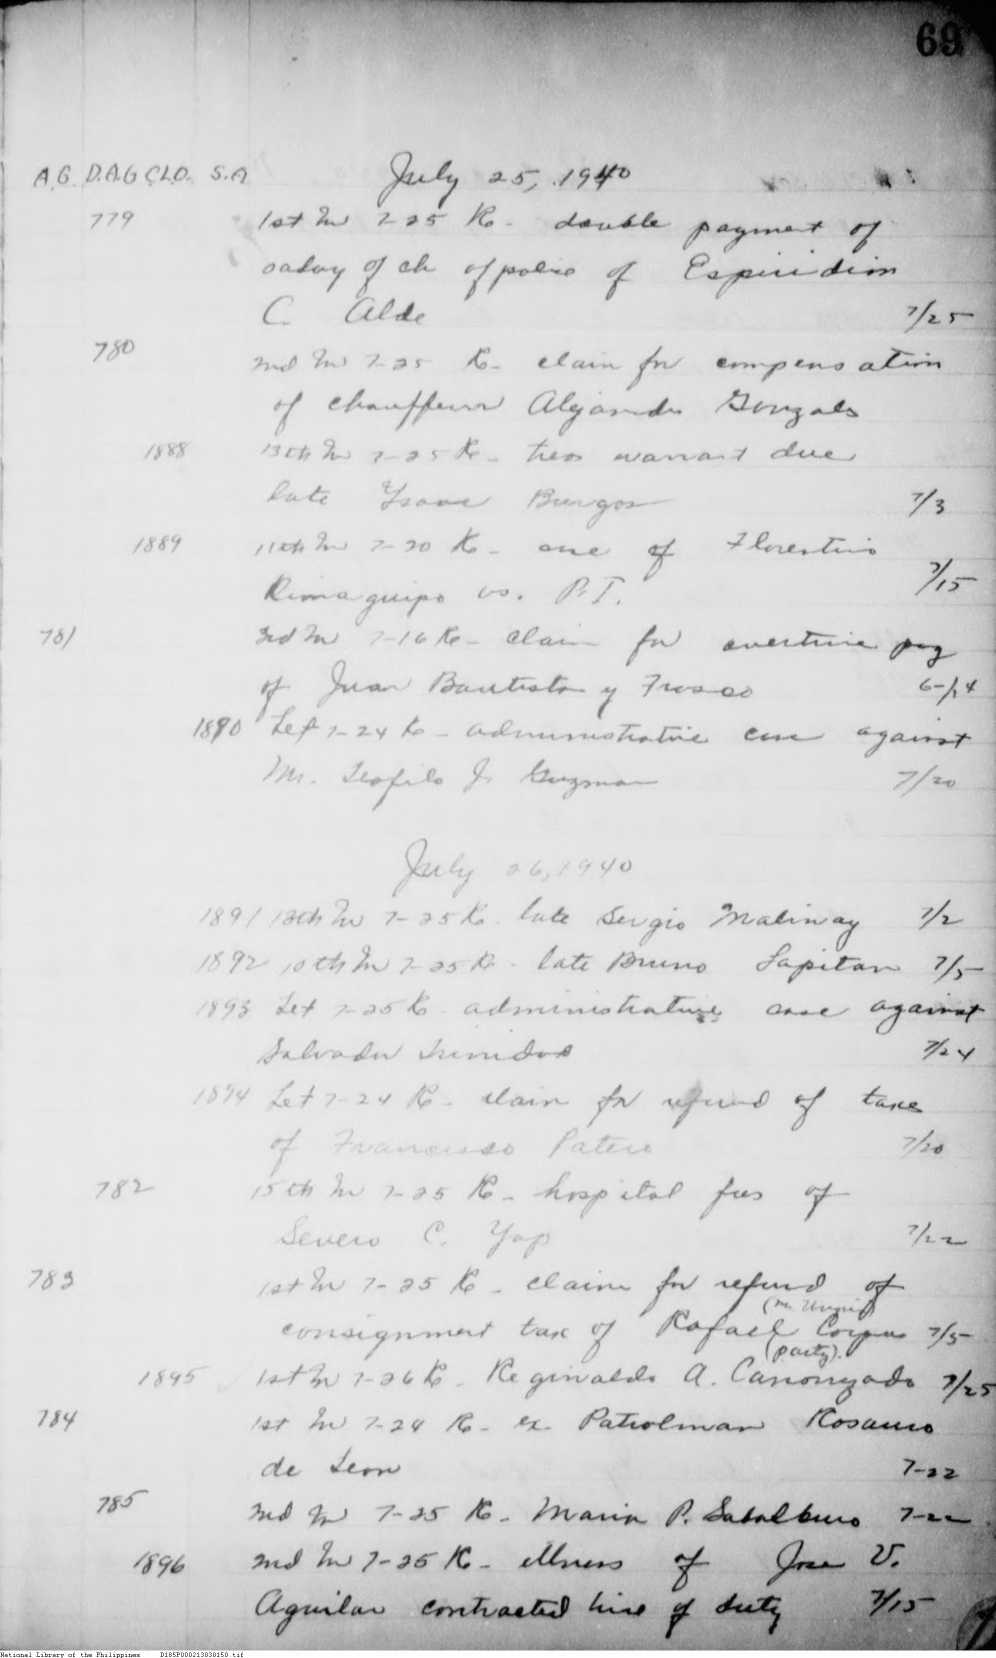 69
A.G. D.A.G C.L.O. S.A July 25, 1940
779 1st In 7-25 R- double payment of
salary of ch of police of Espiridion
C. Alde 7/25
780 2nd In 7-25 R- claim for compensation
of chauffeur Alejandro Gonzales
1888 13th In 7-25 R- tres warrant due
late Ysaac Burgos 7/3
1889 11th In 7-20 R- case of Florentino
Rimaquipo vs. P.I. 7/15
781 3rd In 7-16 R- claim for overtime pay
of Juan Bautista y 6-/14
1890 Let 7-24 R- administrative case against
Mr. Teofilo Guzman 7/20
July 26, 1940
1891 12th In 7-25 R. late Sergio Malinay 7/2
1892 10th In 7-25 R- late Bruno Sapitan 7/5
1893 Let 7-25 R- administrative case against
Salvador Trinidad 7/24
1894 Let 7-24 R- claim for refund of taxes
of Francisco Patero 7/20
782 15th In 7-25 R- hospital fees of
Severo C. Yap 7/22
783 1st In 7-25 R- claim for refund of
consignment tax of Rafael Corpus 7/5
(party).
1895 1st In 7-26 R- Reginaldo A. Canonizado 7/25
784 1st In 7-24 R- ex Patrolman Rosauro
de Leon 7-22
785 2nd In 7-25 R- Maria P. 7-22
1896 2nd In 7-25 R- illness of Jose V.
Aguilar contracted line of duty 7/15
National Library of the Philippines D185P000213038150.tif